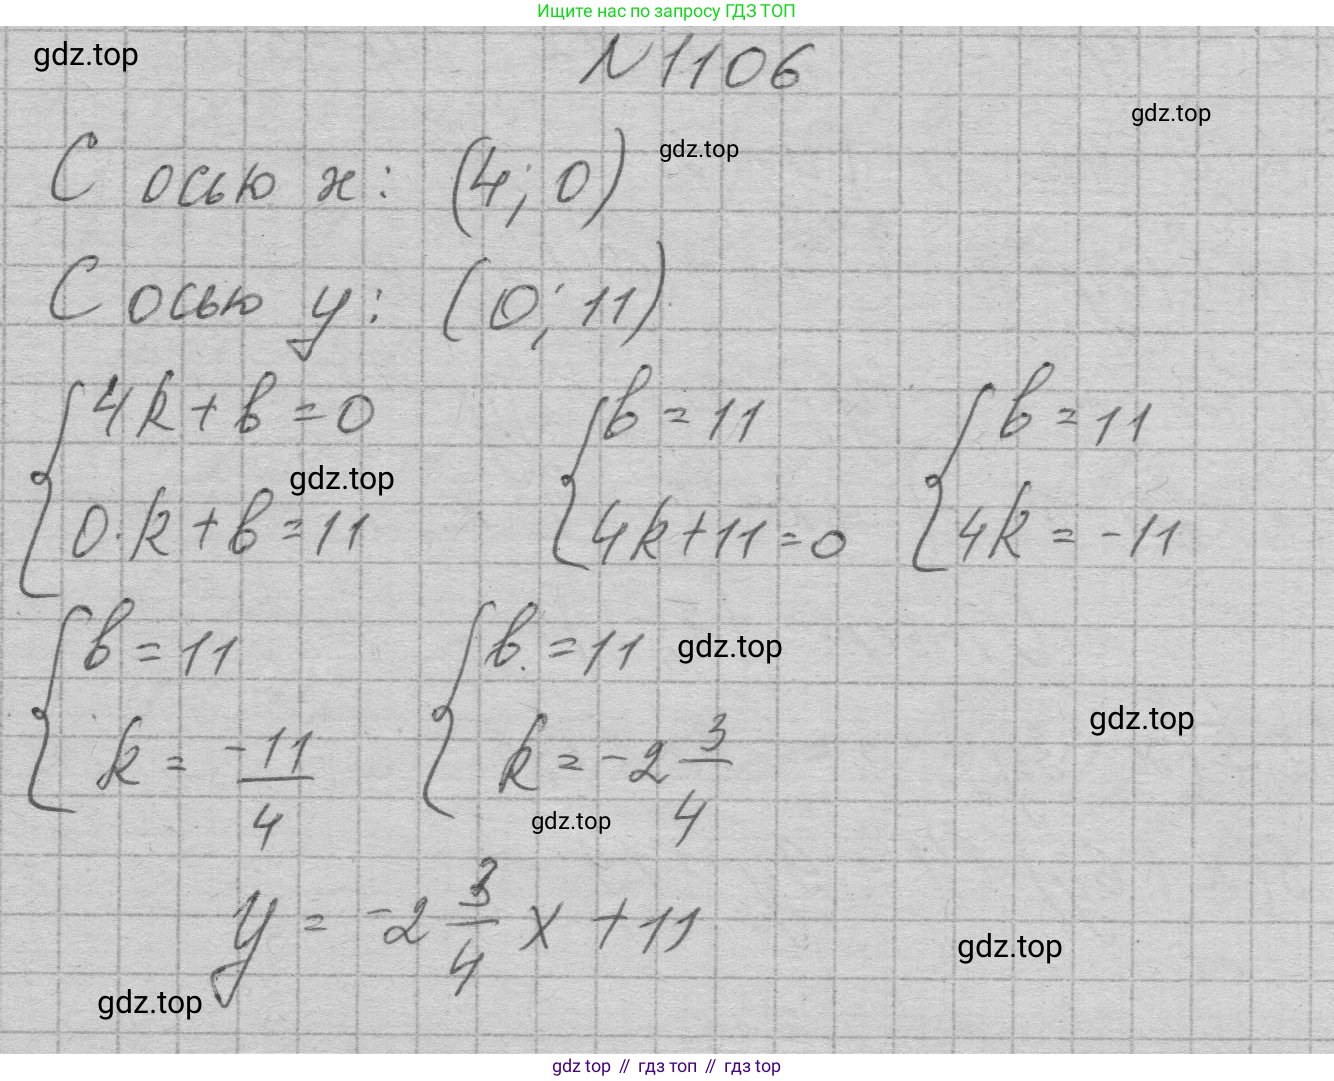 Ищите нас по запросу ГДЗ ТОП
gdz.top
N1106
gdz.top
С осью x: (4; 0)
gdz.top
С осью y: (0; 11)
{4k + b = 0 {b = 11 {b = 11
gdz.top
0·k + b = 11 4k + 11 = 0 4k = -11
{b = 11 {b = 11
gdz.top
gdz.top
k = -11/4 k = -2 3/4
gdz.top
y = -2 3/4 x + 11
gdz.top
gdz.top
gdz top // гдз топ // gdz top